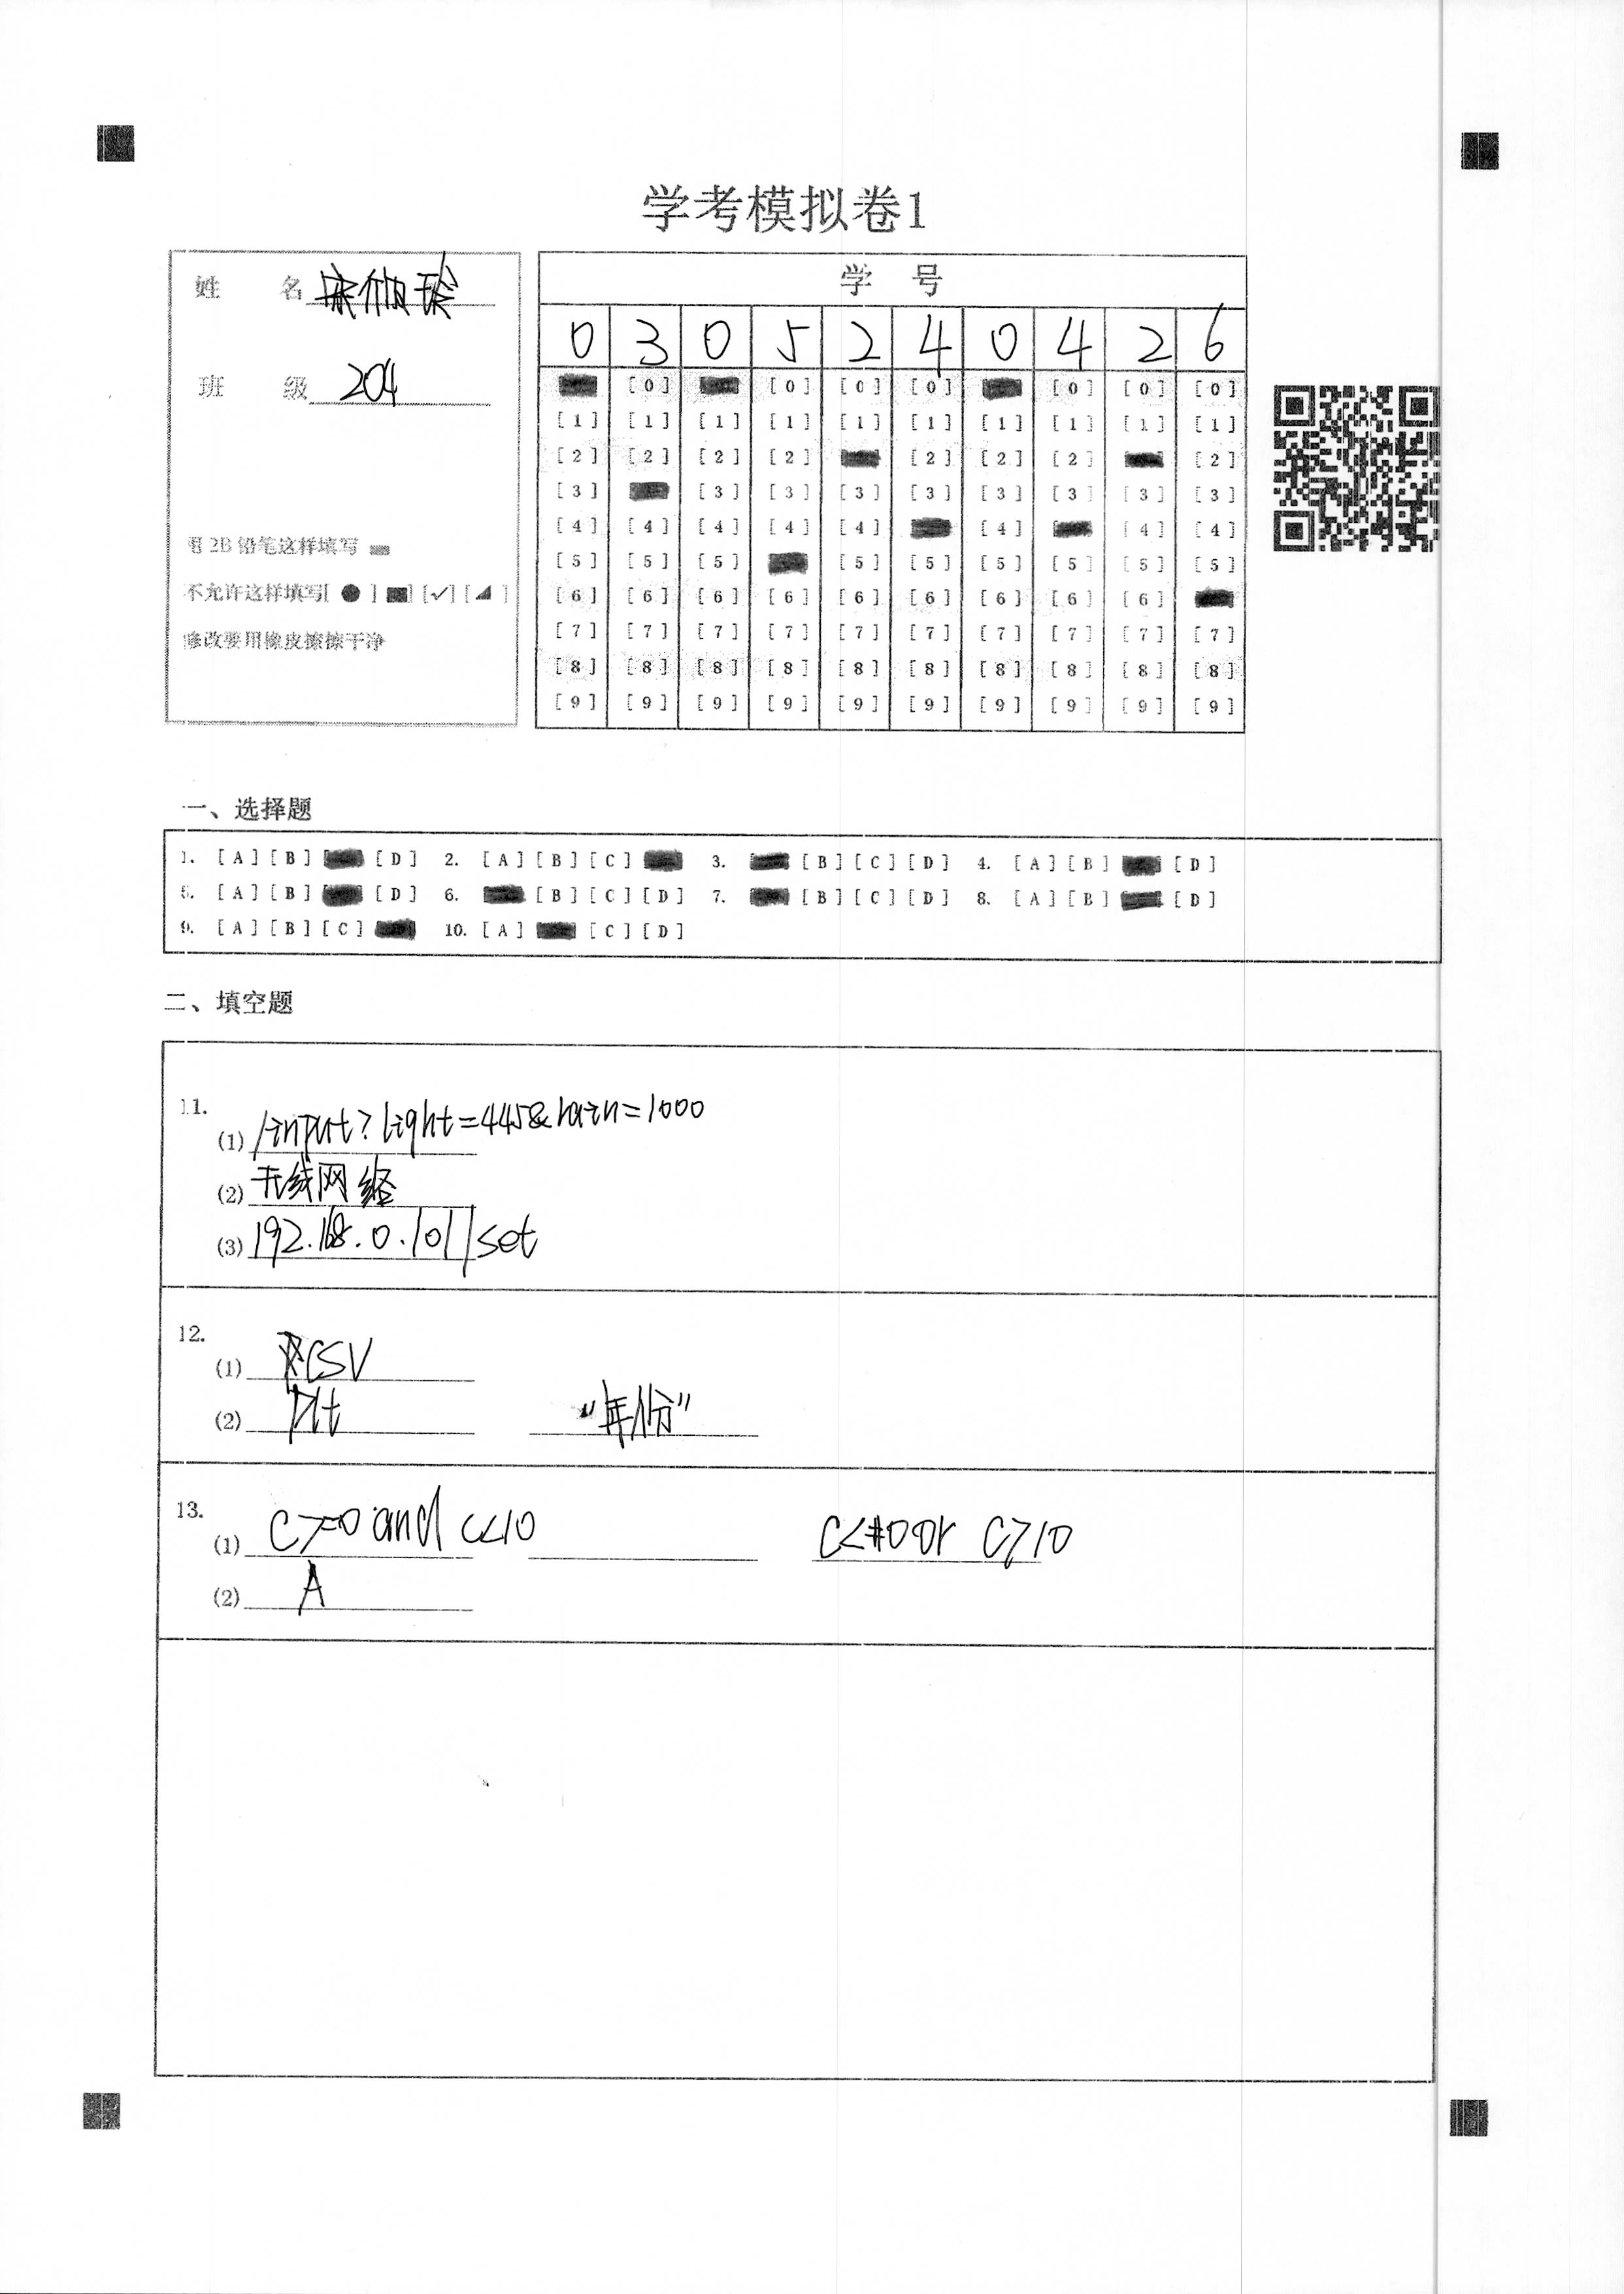 学考模拟卷1
姓 名
班 级 204
用2B铅笔这样填写
不允许这样填写[ ● ] [■] [✓] [◢ ]
修改要用橡皮擦擦干净
学 号
0 3 0 5 2 4 0 4 2 6
[0] [0] [0] [0] [0] [0] [0]
[1] [1] [1] [1] [1] [1] [1] [1] [1] [1]
[2] [2] [2] [2] [2] [2] [2] [2]
[3] [3] [3] [3] [3] [3] [3] [3] [3]
[4] [4] [4] [4] [4] [4] [4] [4]
[5] [5] [5] [5] [5] [5] [5] [5] [5]
[6] [6] [6] [6] [6] [6] [6] [6] [6]
[7] [7] [7] [7] [7] [7] [7] [7] [7] [7]
[8] [8] [8] [8] [8] [8] [8] [8] [8] [8]
[9] [9] [9] [9] [9] [9] [9] [9] [9] [9]
一、选择题
1. [A] [B] [D] 2. [A] [B] [C] 3. [B] [C] [D] 4. [A] [B] [D]
5. [A] [B] [D] 6. [B] [C] [D] 7. [B] [C] [D] 8. [A] [B] [D]
9. [A] [B] [C] 10. [A] [C] [D]
二、填空题
11.
(1) /input?light=445&rain=1000
(2) 无线网络
(3) 192.168.0.101/set
12.
(1) CSV
(2) plt "年份"
13.
(1) c>=0 and c<10 c<0 or c>10
(2) A